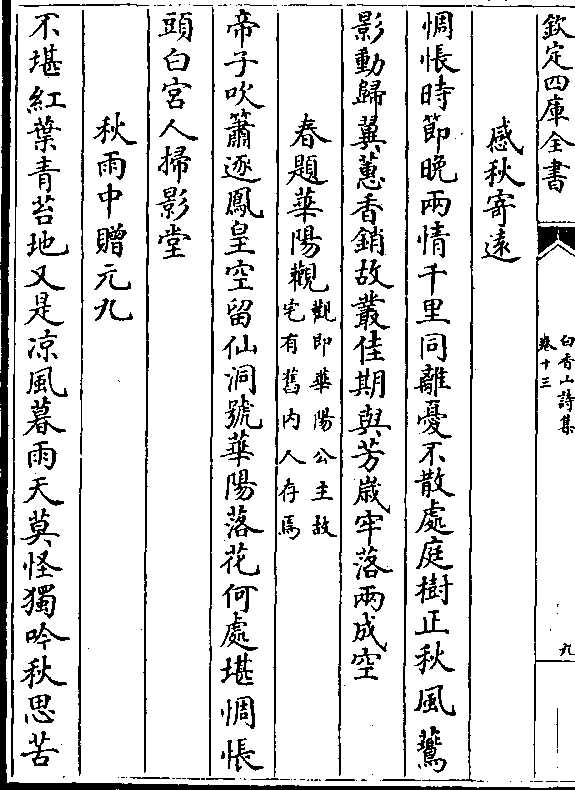 欽定四庫全書
白香山詩集
卷十三
九
感秋寄遠
惆悵時節晩兩情千里同離憂不散處庭樹正秋風鷰
影動歸翼蕙香銷故叢佳期與芳歲牢落兩成空
春題華陽觀觀即華陽公主故
宅有舊内人存焉
帝子吹簫逐鳳皇空留仙洞號華陽落花何處堪惆悵
頭白宫人掃影堂
秋雨中贈元九
不堪紅葉青苔地又是凉風暮雨天莫怪獨吟秋思苦